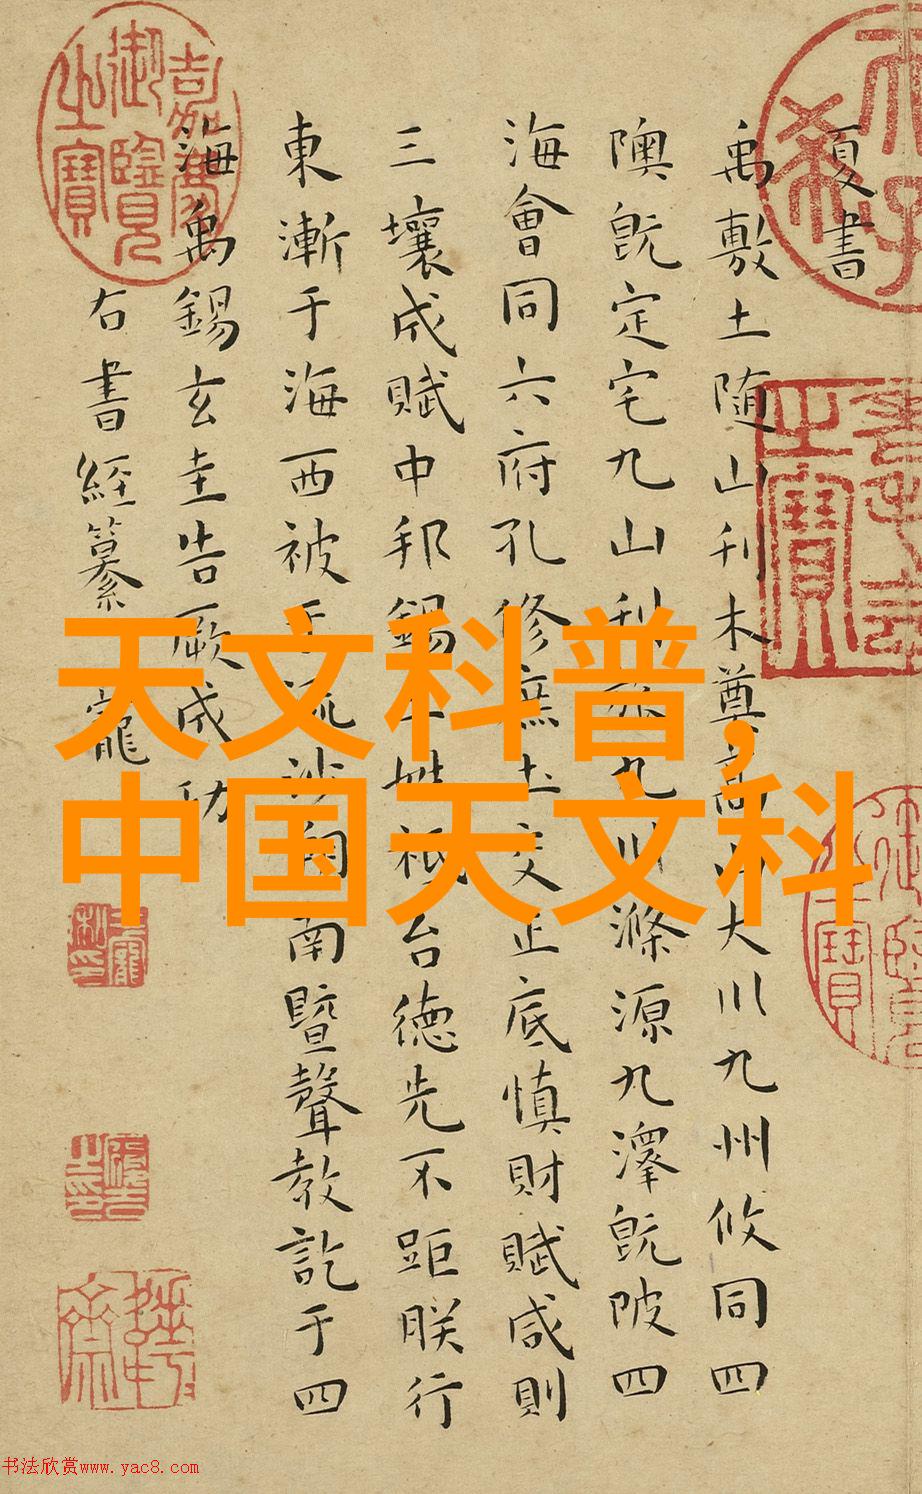 夏書
禹敷土随山刊木尊高山大川九州攸同四
隩既定宅九山刊旅九川滌源九澤既陂四
海會同六府孔修庶土交正底慎財賦咸則
三壤成賦中邦錫土姓祗台德先不距朕行
東漸于海西被于流沙朔南暨聲教訖于四
海禹錫玄圭告厥成功
右書經纂 寵
嘉慶御覽之寶
天文科普,
中国天文科
书法欣赏www.yac8.com